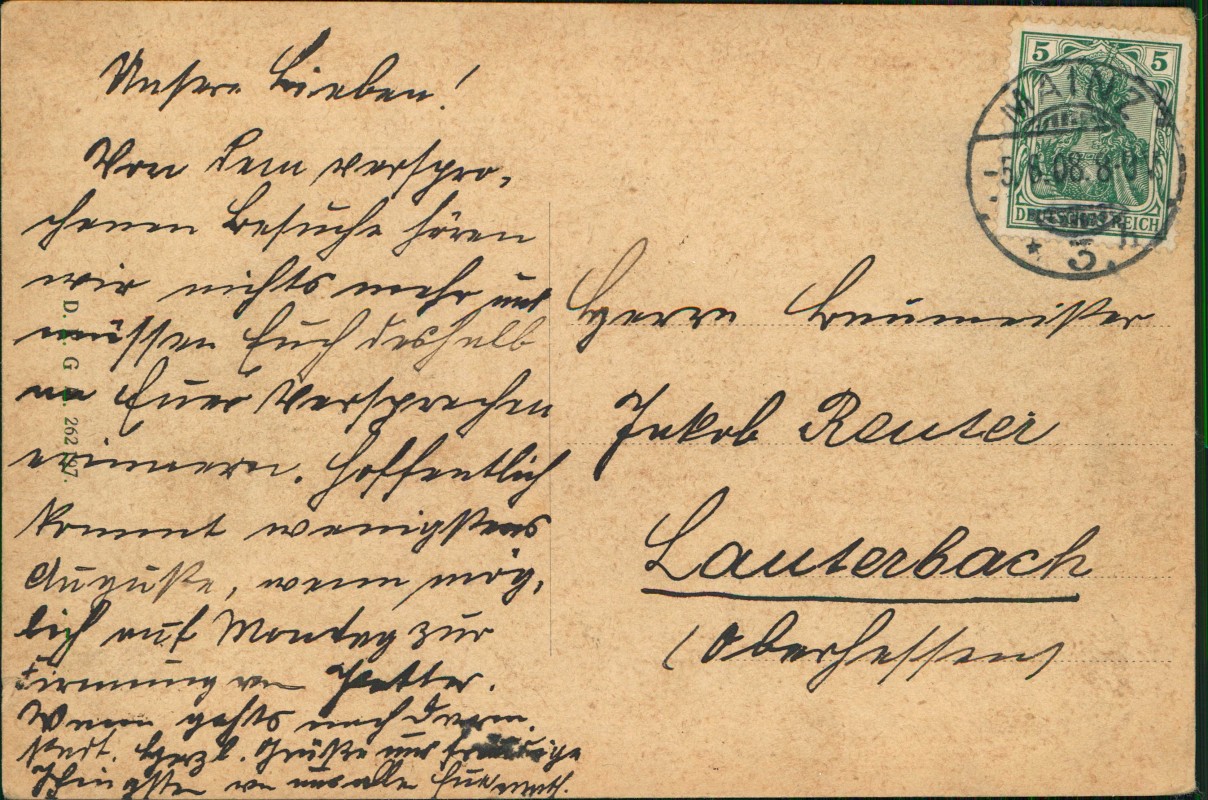 Unsere Lieben!
Von dem verspro-
chenen Besuche hören
wir nichts mehr und
müssen Euch deshalb
an Euer Versprechen
erinnern. Hoffentlich
kommt wenigstens
Auguste, wenn mög-
lich auf Montag zur
Firmung von
Wann gehts nach Darm-
stadt. Herzl. Grüße und freudige
Pfingsten von uns alle
D. G. 262
5 5
DEUTSCHES REICH
MAINZ
5.6.08. 8-9
* 3.
Herrn Baumeister
Jakob Reuter
Lauterbach
(Oberhessen)